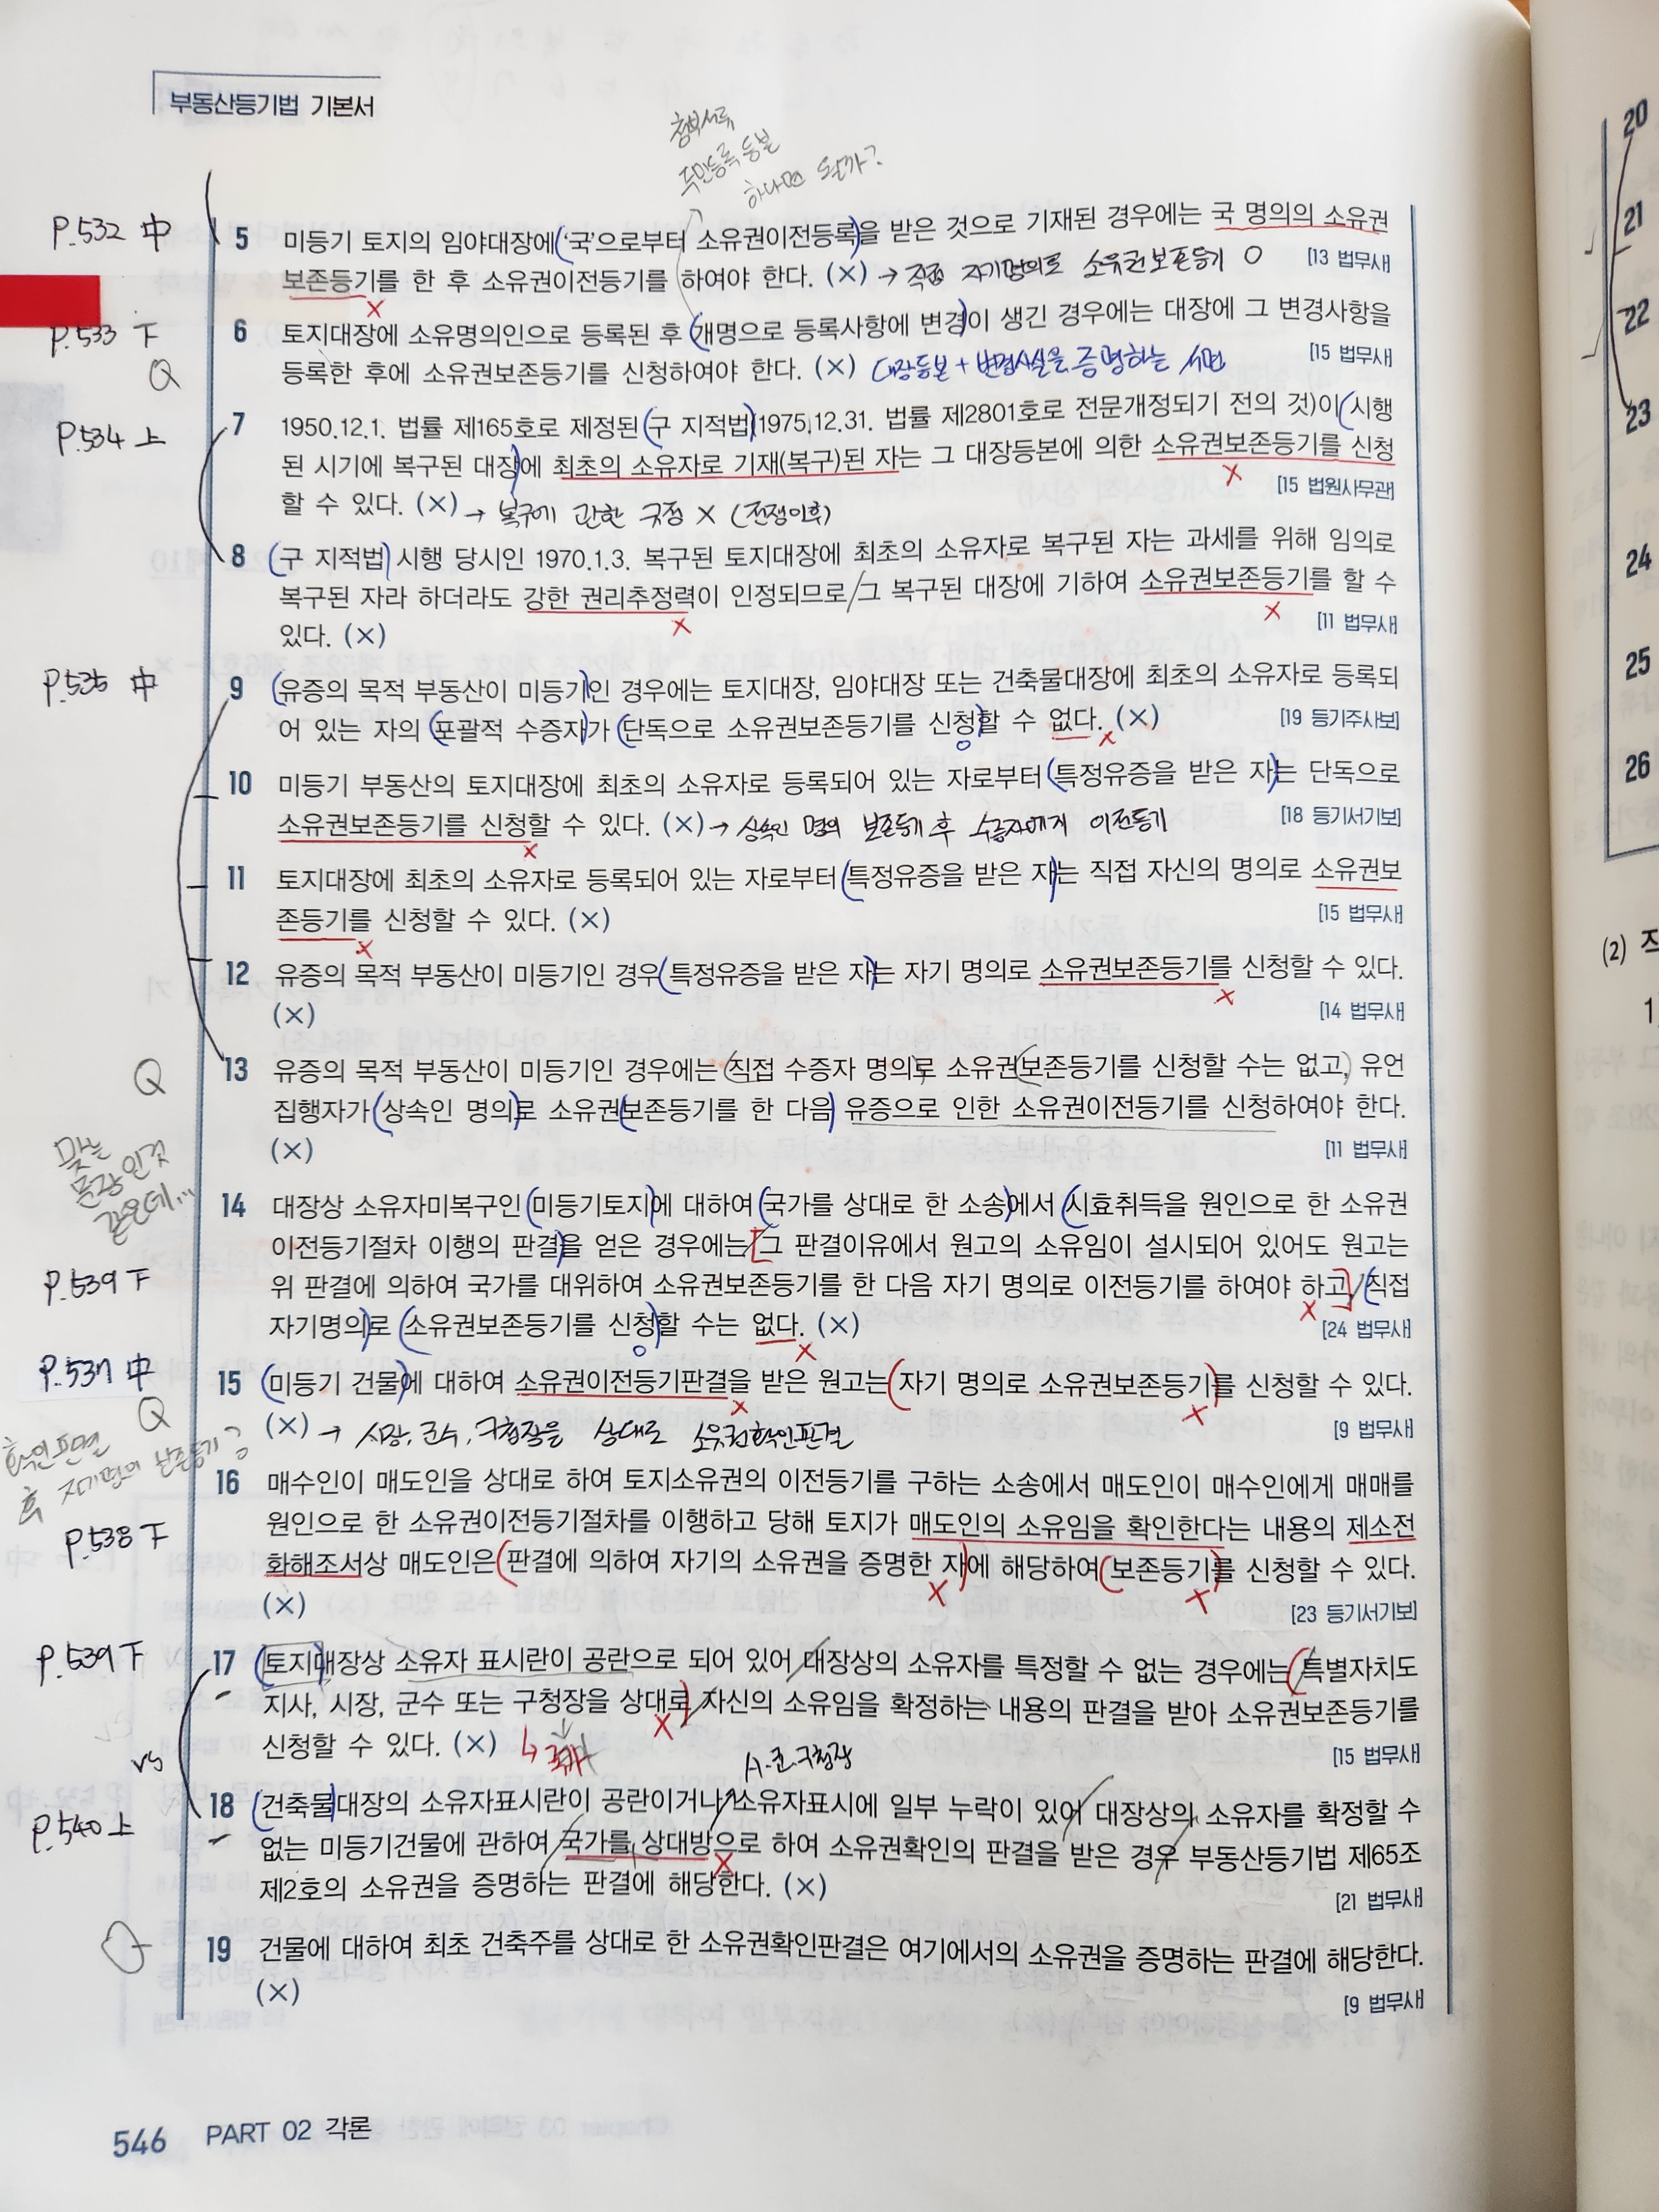 부동산등기법 기본서
첨부서류
주민등록 등본
하나면 될까?
P.532 中
5 미등기 토지의 임야대장에 ‘국’으로부터 소유권이전등록을 받은 것으로 기재된 경우에는 국 명의의 소유권
보존등기를 한 후 소유권이전등기를 하여야 한다. (×) → 직접 자기명의로 소유권보존등기 O [13 법무사]
P.533 下
6 토지대장에 소유명의인으로 등록된 후 개명으로 등록사항에 변경이 생긴 경우에는 대장에 그 변경사항을
Q
등록한 후에 소유권보존등기를 신청하여야 한다. (×) 대장등본 + 변경사실을 증명하는 서면 [15 법무사]
P.534 上
7 1950.12.1. 법률 제165호로 제정된 구 지적법(1975.12.31. 법률 제2801호로 전문개정되기 전의 것)이 시행
된 시기에 복구된 대장에 최초의 소유자로 기재(복구)된 자는 그 대장등본에 의한 소유권보존등기를 신청
할 수 있다. (×) → 복구에 관한 규정 X (전쟁이후) [15 법원사무관]
8 구 지적법 시행 당시인 1970.1.3. 복구된 토지대장에 최초의 소유자로 복구된 자는 과세를 위해 임의로
복구된 자라 하더라도 강한 권리추정력이 인정되므로 그 복구된 대장에 기하여 소유권보존등기를 할 수
있다. (×) [11 법무사]
P.535 中
9 유증의 목적 부동산이 미등기인 경우에는 토지대장, 임야대장 또는 건축물대장에 최초의 소유자로 등록되
어 있는 자의 포괄적 수증자가 단독으로 소유권보존등기를 신청할 수 없다. (×) [19 등기주사보]
10 미등기 부동산의 토지대장에 최초의 소유자로 등록되어 있는 자로부터 특정유증을 받은 자는 단독으로
소유권보존등기를 신청할 수 있다. (×) → 상속인 명의 보존등기 후 수증자에게 이전등기 [18 등기서기보]
11 토지대장에 최초의 소유자로 등록되어 있는 자로부터 특정유증을 받은 자는 직접 자신의 명의로 소유권보
존등기를 신청할 수 있다. (×) [15 법무사]
12 유증의 목적 부동산이 미등기인 경우 특정유증을 받은 자는 자기 명의로 소유권보존등기를 신청할 수 있다.
(×) [14 법무사]
Q
13 유증의 목적 부동산이 미등기인 경우에는 직접 수증자 명의로 소유권보존등기를 신청할 수는 없고, 유언
집행자가 상속인 명의로 소유권보존등기를 한 다음 유증으로 인한 소유권이전등기를 신청하여야 한다.
(×) [11 법무사]
맞는
문장인것
같은데...
14 대장상 소유자미복구인 미등기토지에 대하여 국가를 상대로 한 소송에서 시효취득을 원인으로 한 소유권
이전등기절차 이행의 판결을 얻은 경우에는 그 판결이유에서 원고의 소유임이 설시되어 있어도 원고는
P.539 下
위 판결에 의하여 국가를 대위하여 소유권보존등기를 한 다음 자기 명의로 이전등기를 하여야 하고, 직접
자기명의로 소유권보존등기를 신청할 수는 없다. (×) [24 법무사]
P.537 中
15 미등기 건물에 대하여 소유권이전등기판결을 받은 원고는 자기 명의로 소유권보존등기를 신청할 수 있다.
Q
(×) → 시장, 군수, 구청장을 상대로 소유권확인판결 [9 법무사]
확인판결
후 자기명의 보존등기?
16 매수인이 매도인을 상대로 하여 토지소유권의 이전등기를 구하는 소송에서 매도인이 매수인에게 매매를
원인으로 한 소유권이전등기절차를 이행하고 당해 토지가 매도인의 소유임을 확인한다는 내용의 제소전
P.538 下
화해조서상 매도인은 판결에 의하여 자기의 소유권을 증명한 자에 해당하여 보존등기를 신청할 수 있다.
(×) [23 등기서기보]
P.539 下
17 토지대장상 소유자 표시란이 공란으로 되어 있어 대장상의 소유자를 특정할 수 없는 경우에는 특별자치도
지사, 시장, 군수 또는 구청장을 상대로 자신의 소유임을 확정하는 내용의 판결을 받아 소유권보존등기를
신청할 수 있다. (×) ↳ 국가 [15 법무사]
vs
시.군.구청장
P.540 上
18 건축물대장의 소유자표시란이 공란이거나 소유자표시에 일부 누락이 있어 대장상의 소유자를 확정할 수
없는 미등기건물에 관하여 국가를 상대방으로 하여 소유권확인의 판결을 받은 경우 부동산등기법 제65조
제2호의 소유권을 증명하는 판결에 해당한다. (×) [21 법무사]
19 건물에 대하여 최초 건축주를 상대로 한 소유권확인판결은 여기에서의 소유권을 증명하는 판결에 해당한다.
(×) [9 법무사]
546 PART 02 각론
20
21
22
23
24
25
26
(2)